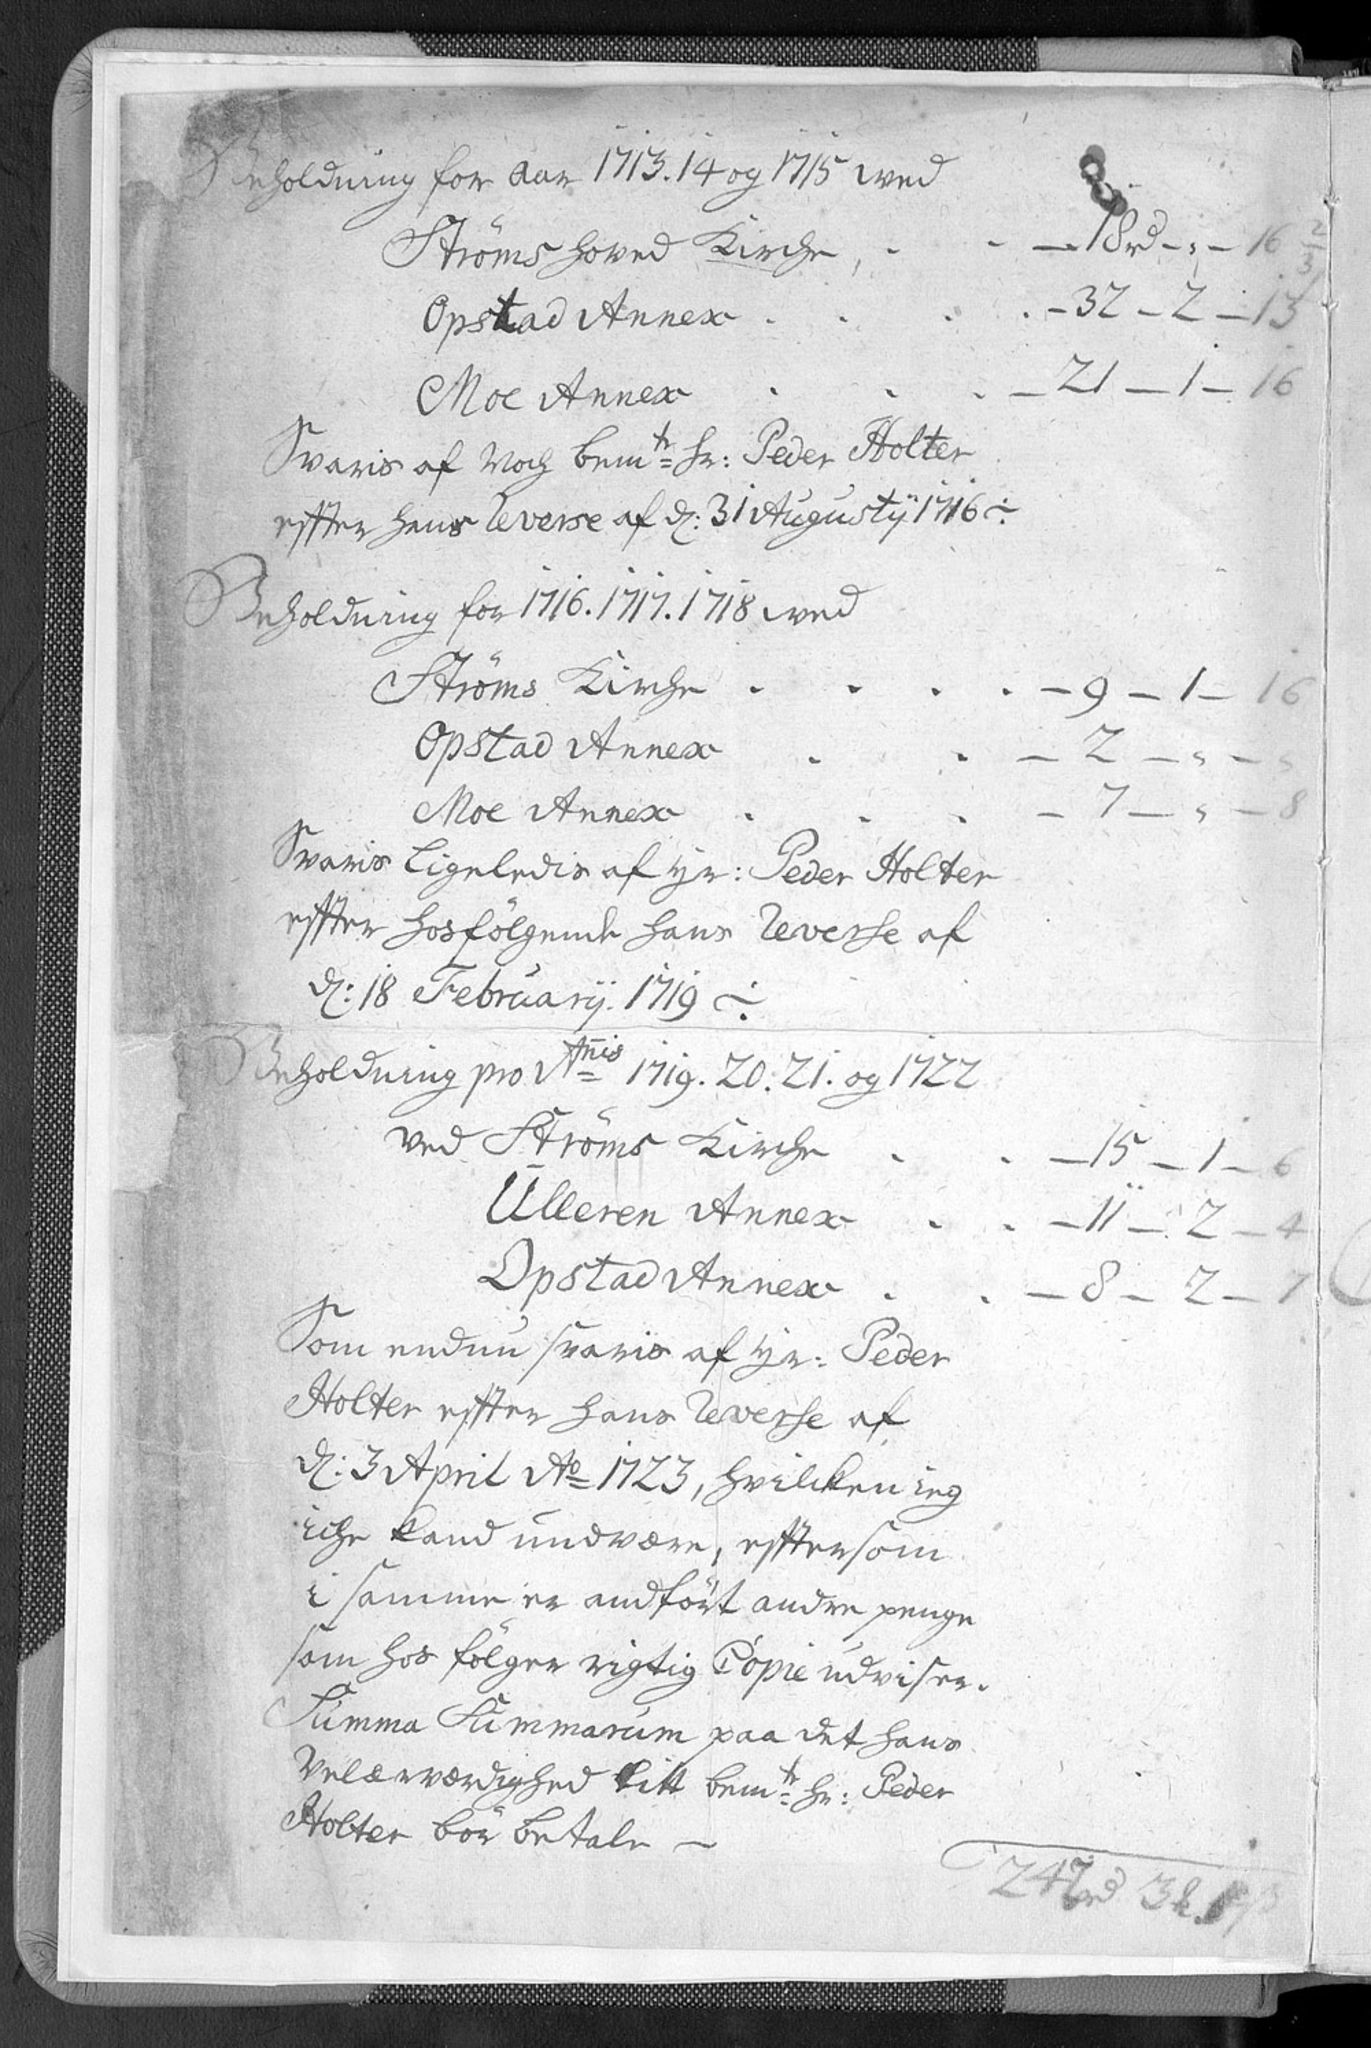 Beholdning for aar 1713. 14 og 1715 wed
Ströms hoved Kirche, . . — 18 rd - „ — 16 2/3
Opstad Annex . . . . — 32 — 2 — 13
Moe Annex . . . — 21 — 1 — 16
Svaris af Voch bemte Hr: Peder Holter
effter hans Reverse af d: 31 Augustij 1716 ÷
Beholdning for 1716. 1717. 1718 wed
Ströms Kirche . . . . — 9 — 1 — 16
Opstad Annex . . — 2 — „ — „
Moe Annex . . . — 7 — „ — 8
Svaris Ligeledis af Hr: Peder Holter
effter hosfölgende hans Reverse af
d: 18 Februarij. 1719 ÷
Beholdning pro Anis 1719. 20. 21. og 1722
ved Ströms Kirche . . — 15 — 1 — 6
Ulleren Annex . . — 11 — 2 — 4
Opstad Annex . . — 8 — 2 — 7
Som endnu svaris af Hr: Peder
Holter effter hans Reverse af
d: 3 April Ao 1723, hvilcken ieg
iche kand undvære, efftersom
i samme er andfört andre penge
som hos fölger rigtig Copie udviser.
Summa Summarum paa det hans
Velærværdighed titt bemte Hr: Peder
Holter bör betale —
247 rd 3 k.